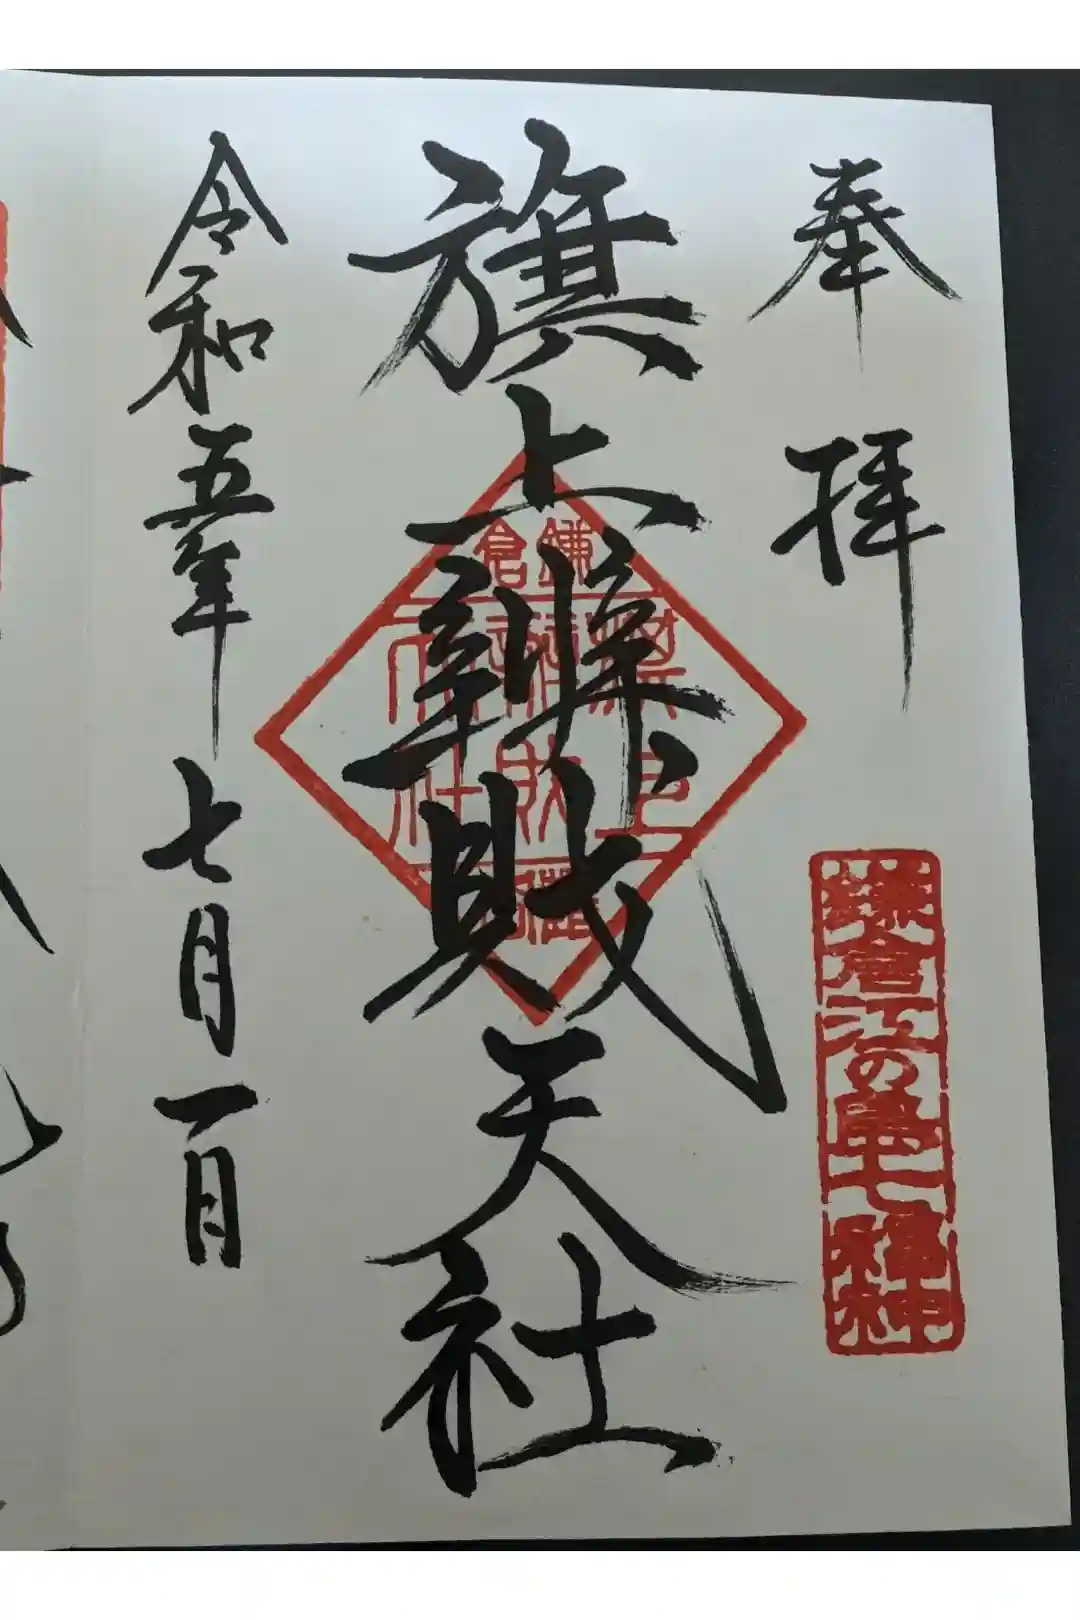 奉拝
鎌倉江の島七福神
旗上辨財天社
鎌倉
令和五年七月一日